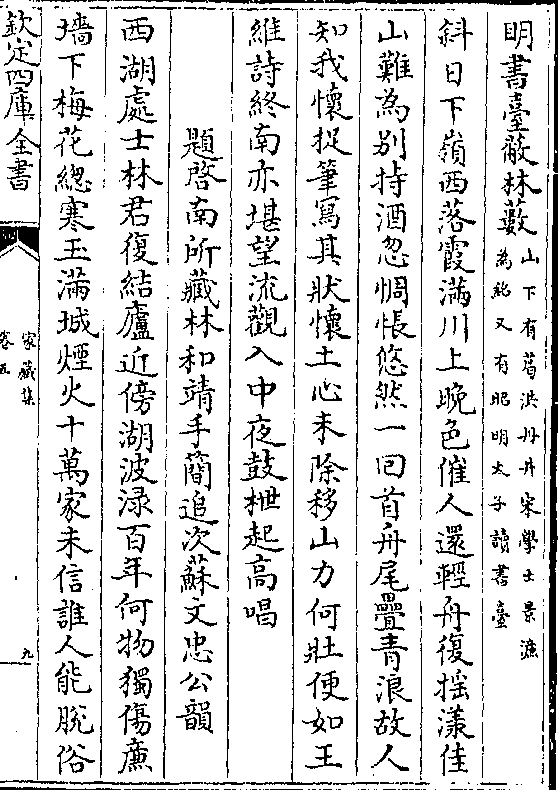 明書臺蔽林藪山下有葛洪丹井宋學士景濂
為銘又有昭明太子讀書臺
斜日下嶺西落霞滿川上晚色催人還輕舟復揺漾佳
山難為别持酒忽惆悵悠然一回首舟尾疊青浪故人
知我懷捉筆寫其狀懷土心未除移山力何壯便如王
維詩終南亦堪望流觀入中夜鼓枻起高唱
題啓南所藏林和靖手簡追次蘇文忠公韻
西湖處士林君復結廬近傍湖波渌百年何物獨傷廉
墻下梅花緫寒玉滿城煙火十萬家未信誰人能脫俗
欽定四庫全書
家藏集
卷五
九